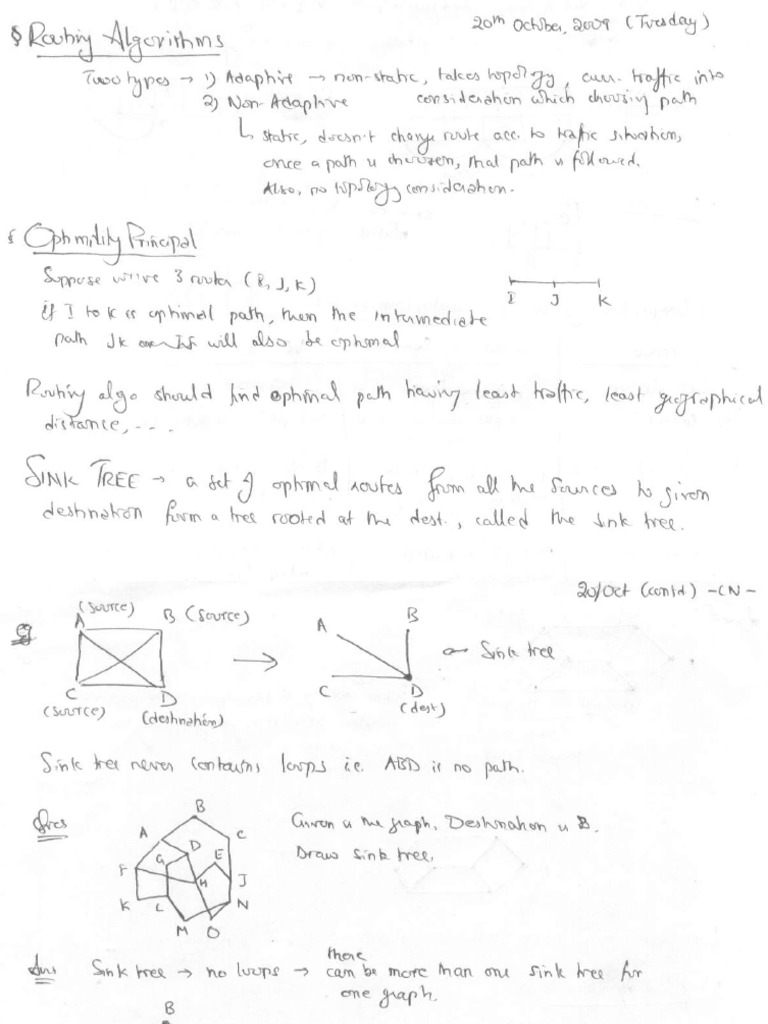 20th October, 2009 (Tuesday)
§ Routing Algorithms
Two types → 1) Adaptive → non-static, takes topology, curr. traffic into
2) Non-Adaptive consideration which choosing path
↳ static, doesn't change route acc. to traffic situation,
once a path is choosen, that path is followed.
Also, no topology consideration.
§ Optimility Principal
Suppose we've 3 router (I, J, K)
I J K
if I to K is optimal path, then the intermediate
path JK will also be optimal
Routing algo should find optimal path having least traffic, least geographical
distance, - - .
SINK TREE → a set of optimal routes from all the sources to given
destination form a tree rooted at the dest., called the sink tree.
20/Oct (contd) -CN-
eg
(source) A B (source)
C D
(source) (destination)
→
A B
C D
(dest)
← Sink tree
Sink tree never contains loops i.e. ABD is no path.
Ques
B
A C
D
G E
F H J
K L N
M O
Given is the graph, Destination is B.
Draw sink tree.
Ans Sink tree → no loops → there can be more than one sink tree for
one graph.
B